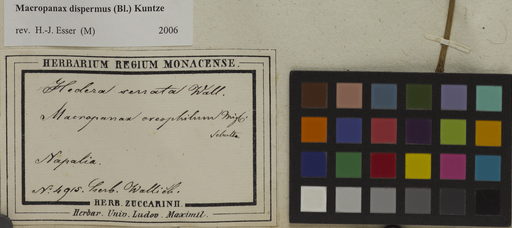 Macropanax dispermus (Bl.) Kuntze
rev. H.-J. Esser (M) 2006
HERBARIUM REGIUM MONACENSE.
Hedera serrata Wall.
Macropanax oreophilum Miq.
Napalia.
N. 4915. herb. Wallich.
HERB. ZUCCARINII.
Herbar. Univ. Ludov. Maximil.